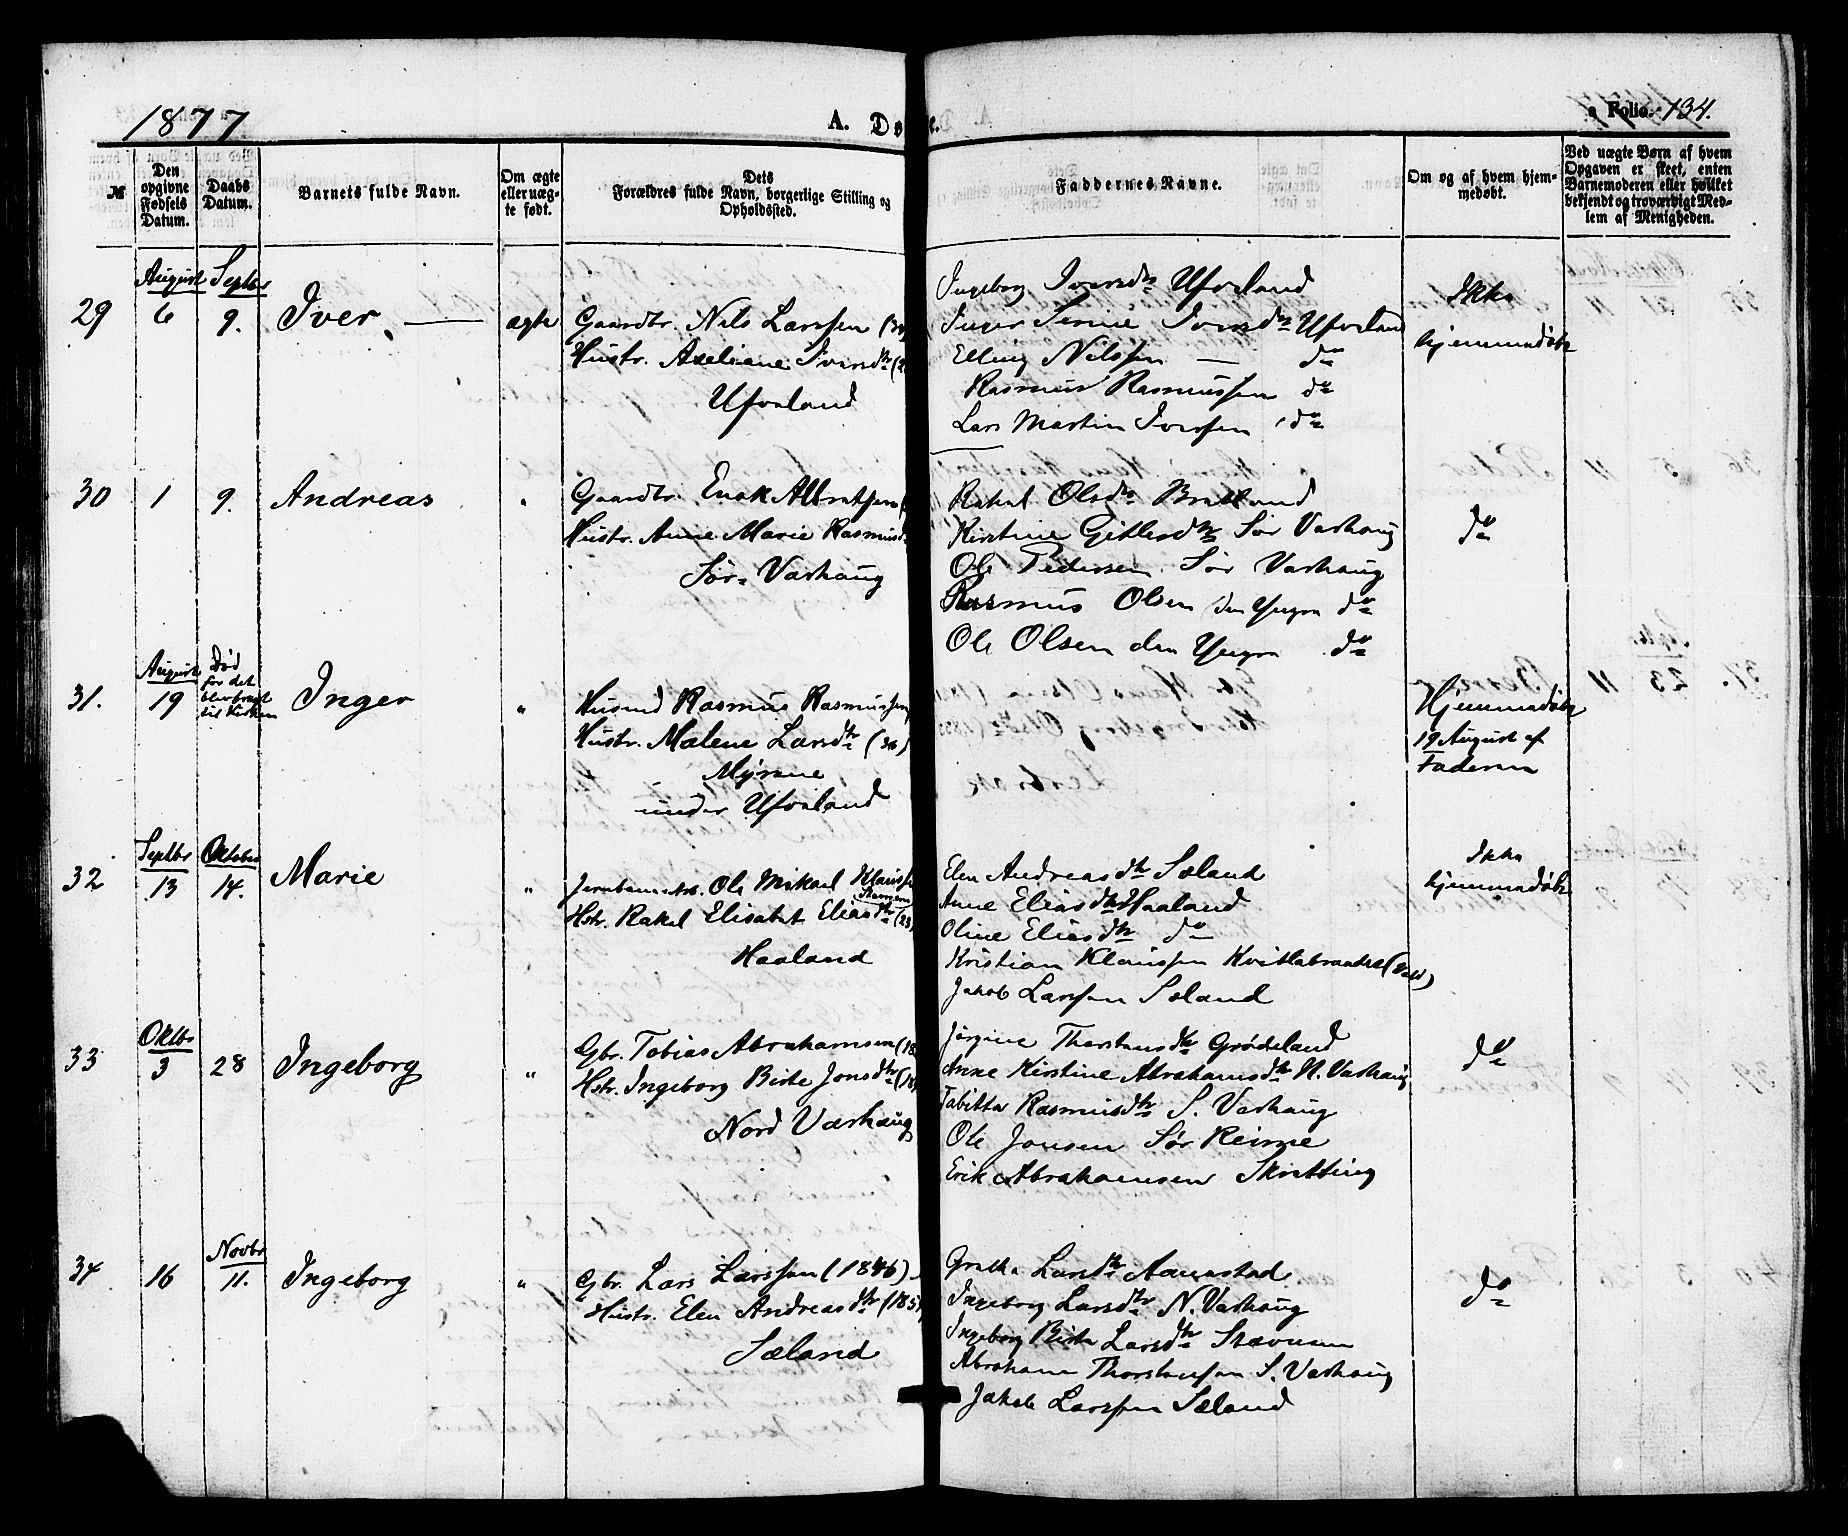 1877
A. Dø e.
Folio. 134.
№
Den opgivne Fødsels Datum.
Daabs Datum.
Barnets fulde Navn.
Om ægte eller uægte født.
Dets Forældres fulde Navn, borgerlige Stilling og Opholdssted.
Faddernes Navne.
Om og af hvem hjemmedøbt.
Ved uægte Børn af hvem Opgaven er skeet, enten Barnemoderen eller hvilket bekjendt og troværdigt Medlem af Menigheden.
29
August 6
Septbr 9.
Iver
ægte
Gaardbr. Nils Larssen
Hustr. Axeliane Iversdtr
Ufveland
Ingeborg Iversdtr Ufveland
Inger Serine Iversdtr Ufveland
Elling Nilssen — do
Rasmus Rasmussen do
Lars Martin Iverssen do
Ikke
hjemmedøbt
30
1
9.
Andreas
"
Gaardbr. Enok Albretsen
Hustr. Anne Marie Rasmusd
Sør-Varhaug
Rakel Olsdtr Bratland
Kirstine Gitlesdtr Sør Varhaug
Ole Pedersen Sør Varhaug
Rasmus Olsen den Yngre do
Ole Olsen den Yngre do
do
31.
August 19
Død
før det
blev bragt
til Kirken
Inger
"
Husmd Rasmus Rasmussen
Hustr. Malene Larsdtr (36)
Myrene
under Ufveland
Hjemmedøbt
19 August af
Faderen
32
Septbr 13
Oktober 14.
Marie
"
Jernbanearb. Ole Mikael Klaussen
Hstr. Rakel Elisabet Eliasdtr (23)
Haaland
Elen Andreasdtr Sæland
Anne Eliasdtr Haaland
Oline Eliasdtr do
Kristian Klaussen
Jakob Larssen Sæland
Ikke
hjemmedøbt
33
Oktbr 3
28
Ingeborg
"
Gbr. Tobias Abrahamsen (18
Hstr. Ingeborg Birte Jonsdtr (18
Nord Varhaug
Jørgine Thorstensdtr Grødeland
Anne Kirstine Abrahamsdtr N. Varhaug
Tabitta Rasmusdtr S. Varhaug
Ole Jonsen Sør Reime
Erik Abrahamsen Skretting
do
34
16
Novbr 11.
Ingeborg
"
Gbr. Lars Larssen (1846)
Hustr. Elen Andreasdtr (185
Sæland
Grethe Larsdtr Aanestad
Ingeborg Larsdtr N. Varhaug
Ingeborg Birte Larsdtr Stavnem
Abraham Thorstenssen S. Varhaug
Jakob Larssen Sæland
do